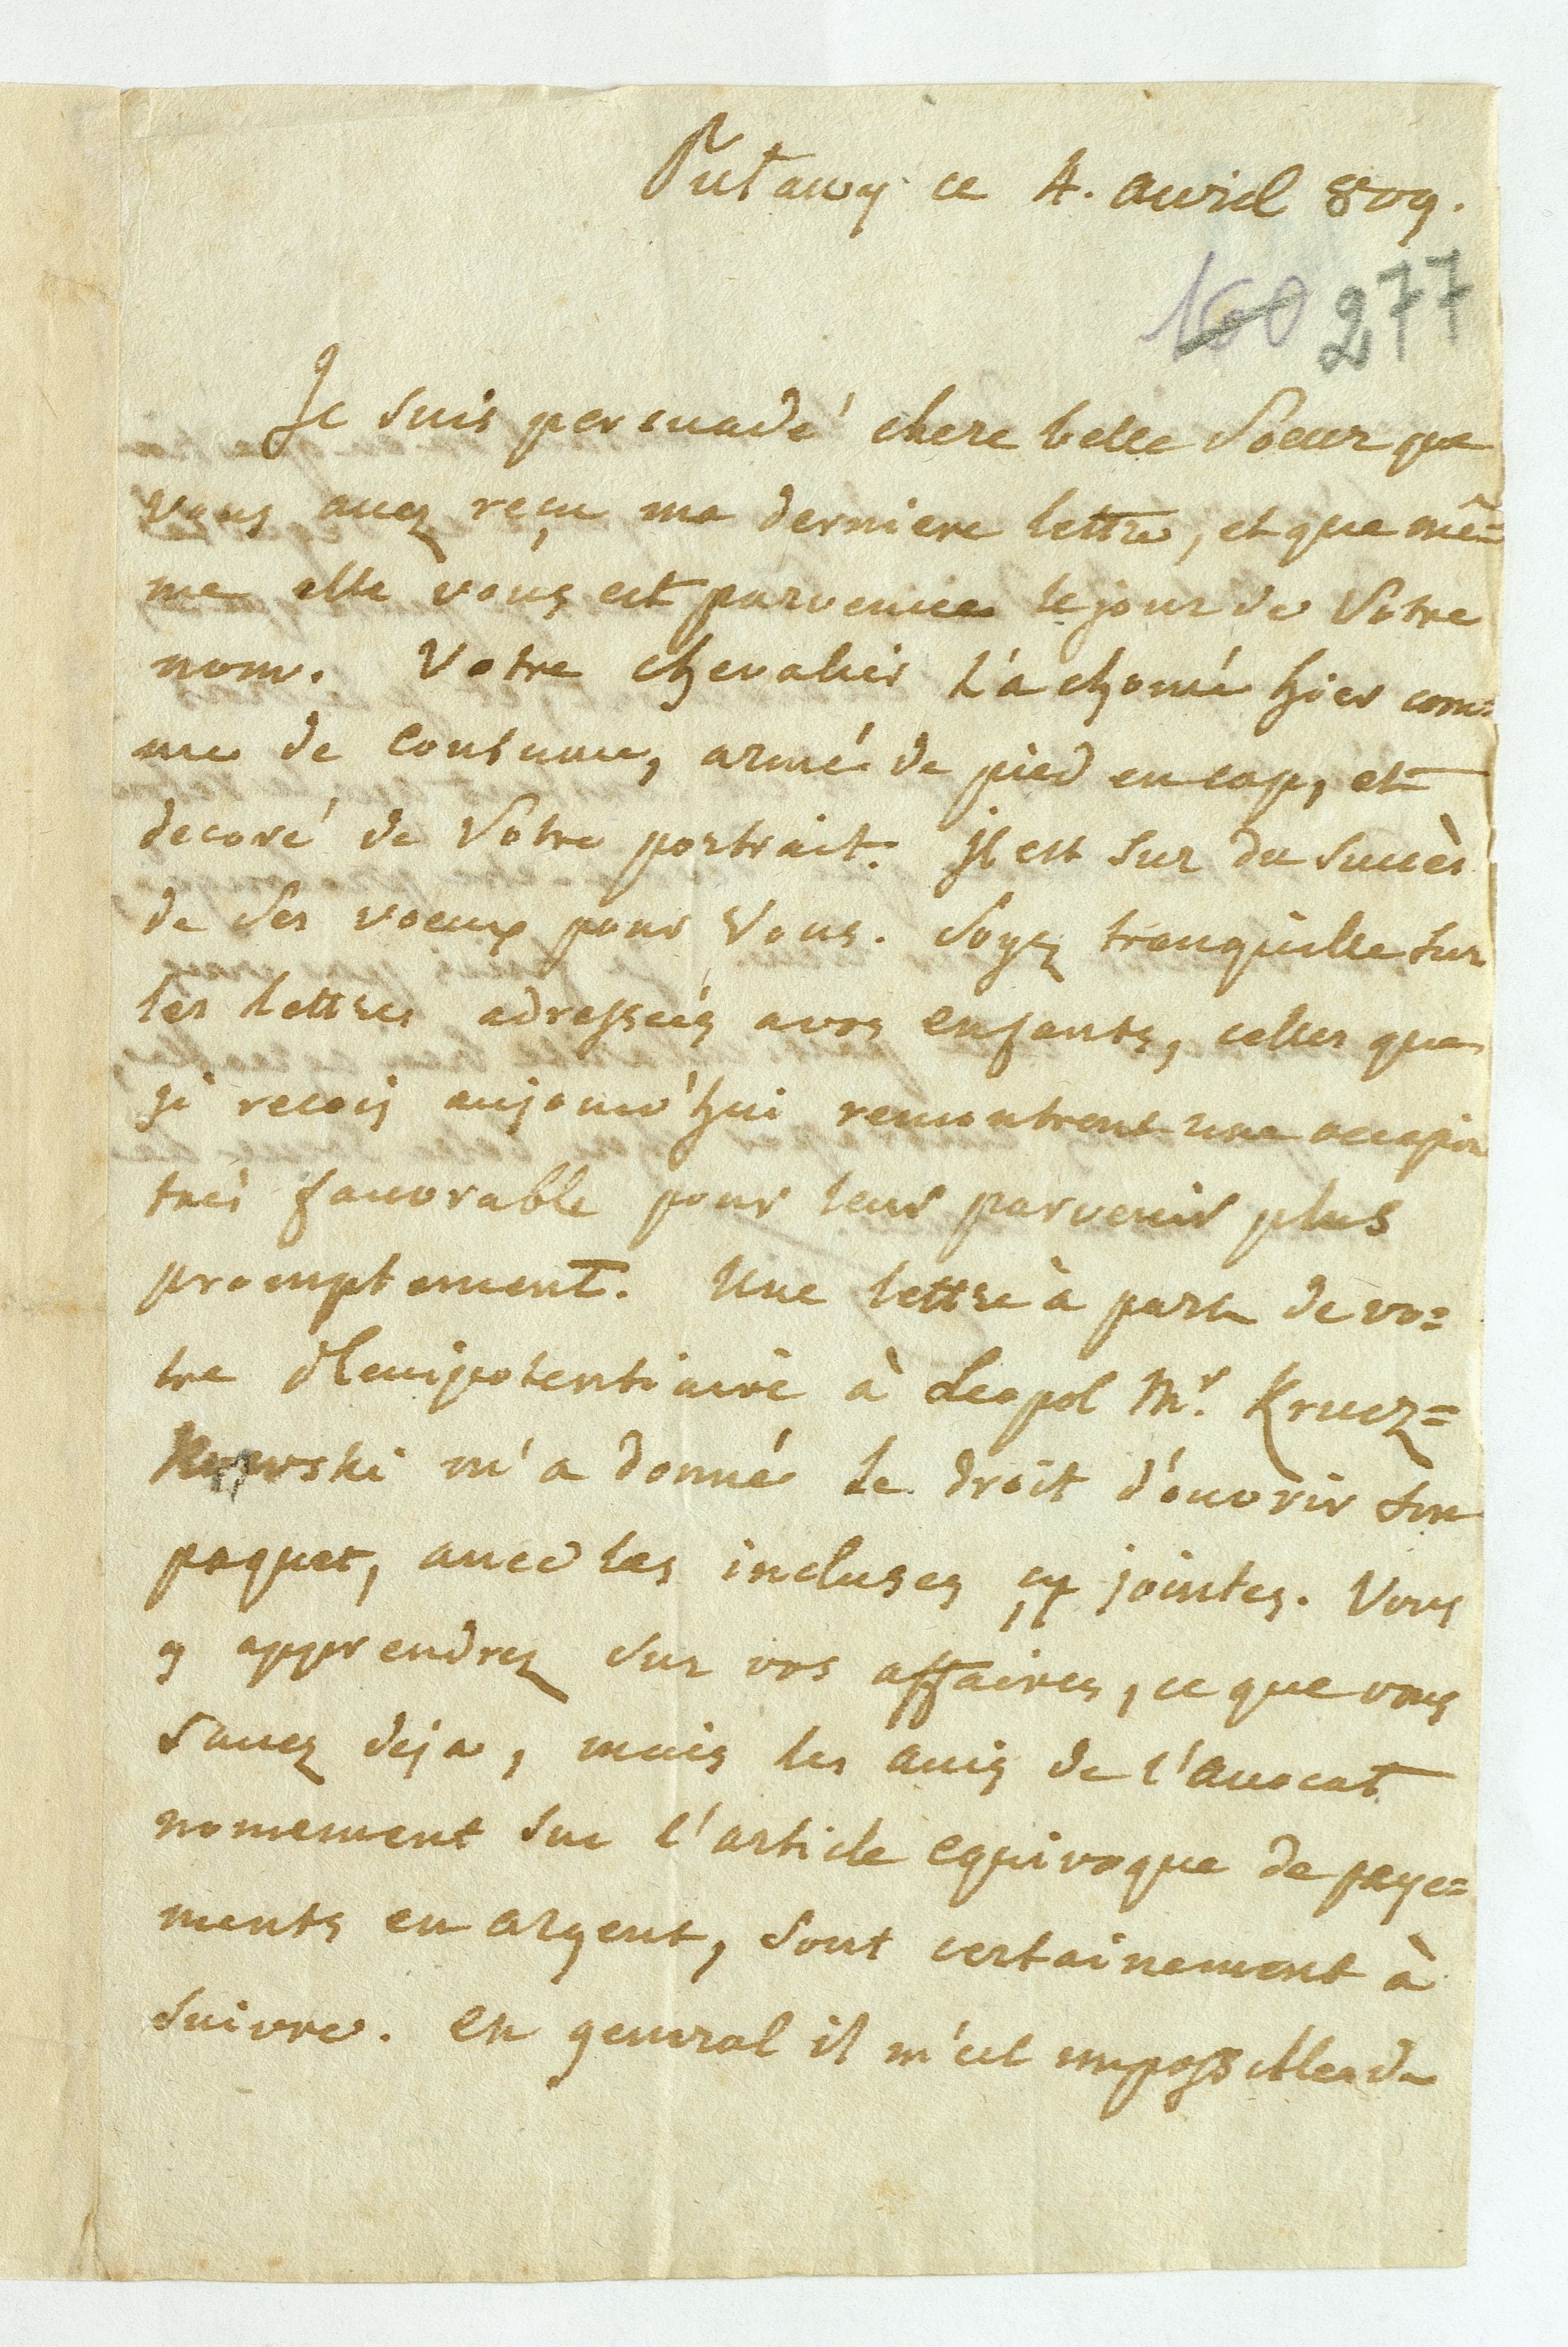 Puławy ce 4. avril 809.
160 277
Je suis persuadé chere belle Soeur que
vous avez reçu ma derniere lettre, et que mê=
me elle vous est parvenue le jour de Votre
nom. Votre chevalier l'a chomé hier com=
me de coutume, armé de pied en cap, et
decoré de Votre portrait. Il est sur du succès
de ses voeux pour Vous. Soyez tranquille sur
les lettres adressées a vos enfants, celles que
je reçois aujourd'hui rencontrent une occasion
très favorable pour leur parvenir plus
promptement. Une lettre à part de vo=
tre Plenipotentiaire à Leopol Mr. Krucz=
kowski m'a donné le droit d'ouvrir son
paquet, avec les incluses cy jointes. Vous
y apprendrez sur vos affaires, ce que vous
savez deja, mais les avis de l'avocat
nomement sur l'article equivoque de paye=
ments en argent, sont certainement à
suivre. en general il m'est impossible de